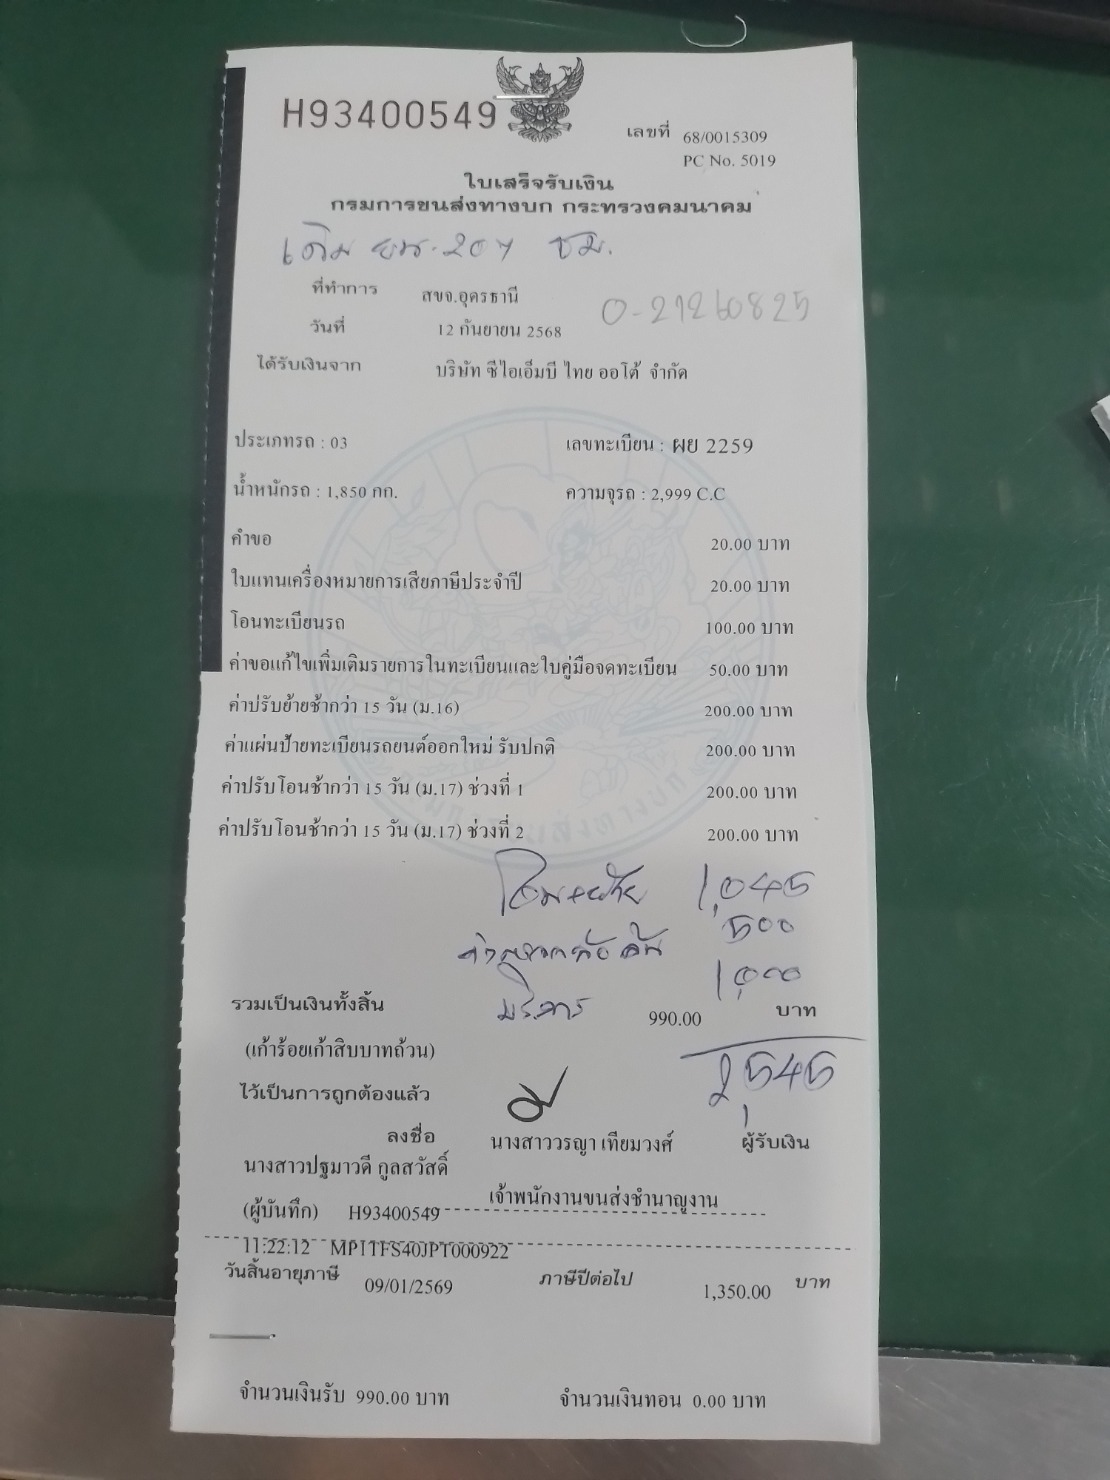 H93400549
เลขที่ 68/0015309
PC No. 5019
ใบเสร็จรับเงิน
กรมการขนส่งทางบก กระทรวงคมนาคม
เดิม 207 ชม.
ที่ทำการ สขจ.อุดรธานี
0-21260825
วันที่ 12 กันยายน 2568
ได้รับเงินจาก บริษัท ซีไอเอ็มบี ไทย ออโต้ จำกัด
ประเภทรถ : 03 เลขทะเบียน : ผย 2259
น้ำหนักรถ : 1,850 กก. ความจุรถ : 2,999 C.C
คำขอ 20.00 บาท
ใบแทนเครื่องหมายการเสียภาษีประจำปี 20.00 บาท
โอนทะเบียนรถ 100.00 บาท
ค่าขอแก้ไขเพิ่มเติมรายการในทะเบียนและใบคู่มือจดทะเบียน 50.00 บาท
ค่าปรับย้ายช้ากว่า 15 วัน (ม.16) 200.00 บาท
ค่าแผ่นป้ายทะเบียนรถยนต์ออกใหม่ รับปกติ 200.00 บาท
ค่าปรับโอนช้ากว่า 15 วัน (ม.17) ช่วงที่ 1 200.00 บาท
ค่าปรับโอนช้ากว่า 15 วัน (ม.17) ช่วงที่ 2 200.00 บาท
โอน+ย้าย 1,045
500
บริการ 1,000
รวมเป็นเงินทั้งสิ้น 990.00 บาท
(เก้าร้อยเก้าสิบบาทถ้วน)
2,545
ไว้เป็นการถูกต้องแล้ว
ลงชื่อ นางสาววรญา เทียมวงศ์ ผู้รับเงิน
นางสาวปฐมาวดี กูลสวัสดิ์
เจ้าพนักงานขนส่งชำนาญงาน
(ผู้บันทึก) H93400549
11:22:12 MP1TFS40JPT000922
วันสิ้นอายุภาษี 09/01/2569 ภาษีปีต่อไป 1,350.00 บาท
จำนวนเงินรับ 990.00 บาท จำนวนเงินทอน 0.00 บาท